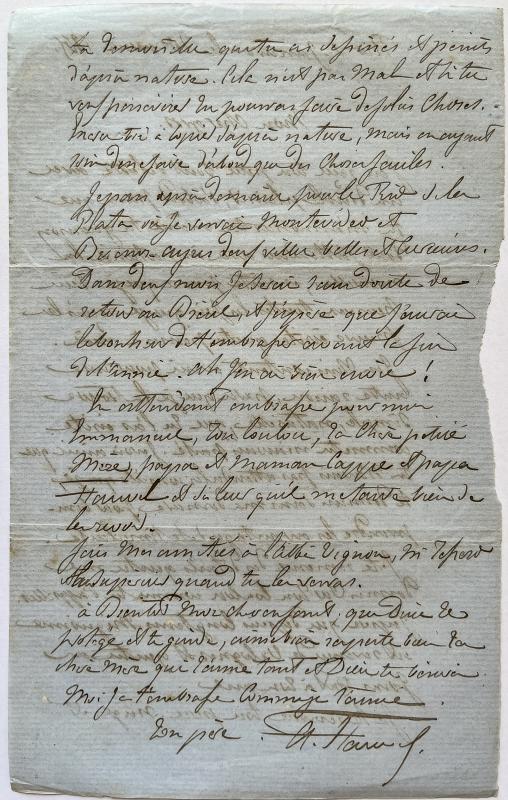 La demoiselle que tu as dessinée et peinte
d'après nature. Cela n'est pas mal et si tu
veux tu pourras faire de jolies choses.
à copier d'après nature, mais en ayant
soin de ne faire d'abord que des choses faciles.
Je pars après demain pour le Rio de la
Plata où je verrai Montevideo et
Buenos ayres deux villes belles et curieuses.
Dans deux mois je serai sans doute de
retour au Brésil, et j'espère que j'aurai
le bonheur de t'embrasser avant la fin
de l'année. Ah j'en ai bien envie !
En attendant embrasse pour moi
Emmanuel, ton loulou, ta chère petite
Mère, papa et Maman Cappe et papa
et dis leur qu'il me tarde bien de
les revoir.
Fais mes amitiés à l'abbé Vignon,
Supérieur quand tu les verras.
à Bientôt Mon cher enfant. que Dieu te
protège et te guide, aime bien respecte bien ta
chère Mère qui t'aime tant et Dieu te bénira
Moi je t'embrasse comme je t'aime.
Ton père